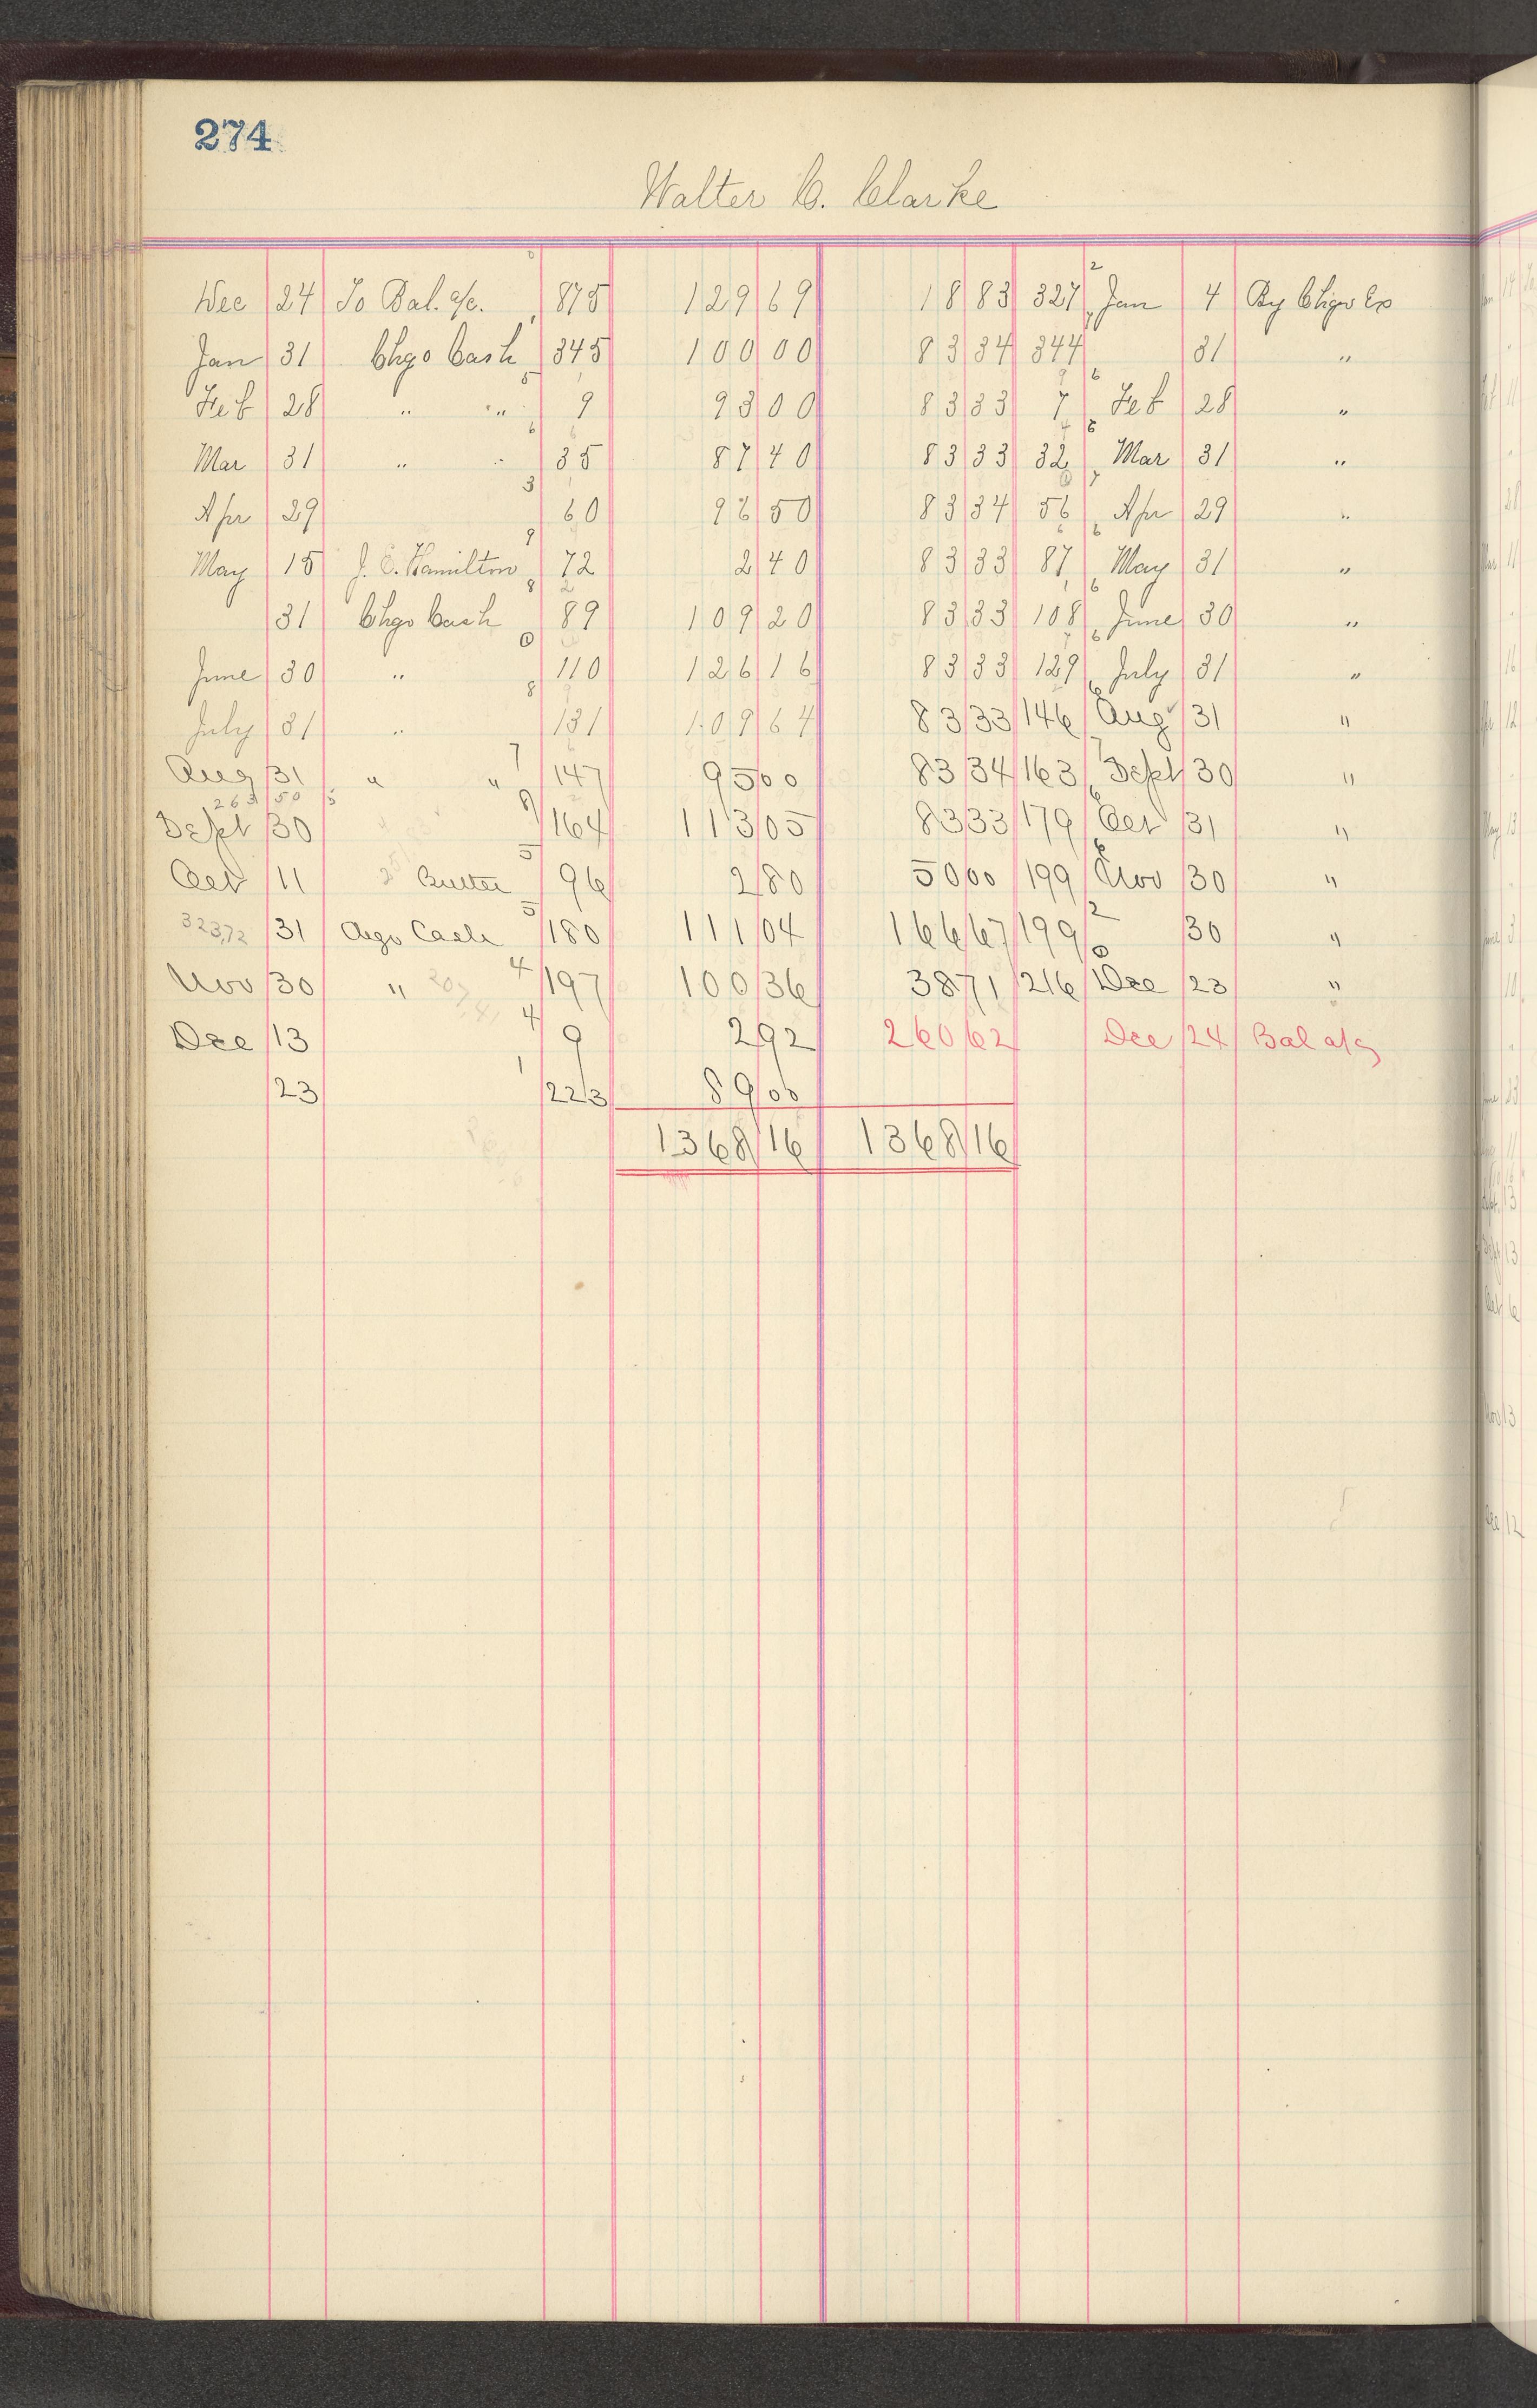 274
Walter C. Clarke
Dec 24 To Bal. a/c. 875 129 69 18 83 327 2 Jan 4 By Chgo Ex
Jan 31 Chgo Cash 345 100 00 83 34 344 31 "
Feb 28 " " 5 9 93 00 83 33 7 6 Feb 28 "
Mar 31 " " 6 35 87 40 83 33 32 6 Mar 31 "
Apr 29 3 60 96 50 83 34 56 7 Apr 29 "
May 15 J. C. Hamilton 9 72 2 40 83 33 87 6 May 31 "
31 Chgo Cash 8 89 109 20 83 33 108 6 June 30 "
June 30 " 0 110 126 16 83 33 129 6 July 31 "
July 31 " 8 131 109 64 83 33 146 6 Aug 31 "
Aug 31 " " 7 147 95 00 83 34 163 7 Sept 30 "
263 50
Sept 30 8 164 113 05 83 33 179 6 Oct 31 "
Oct 11 Butter 5 96 2 80 50 00 199 6 Nov 30 "
323,72 31 Chgo Cash 5 180 111 04 166 67 199 2 30 "
Nov 30 " 4 197 100 36 38 71 216 0 Dec 23 "
Dec 13 4 9 2 92 260 62 Dec 24 Bal a/c
23 1 223 89 00
1368 16 1368 16